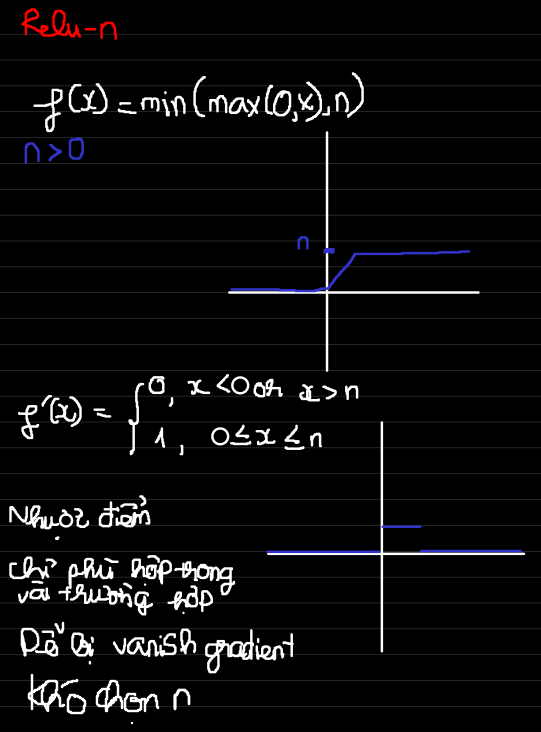 Relu-n
f(x) = min(max(0,x),n)
n>0
n
f'(x) = { 0, x<0 or x>n
1, 0≤x≤n
Nhược điểm
chỉ phù hợp trong
vài trường hợp
Dễ bị vanish gradient
Khó chọn n